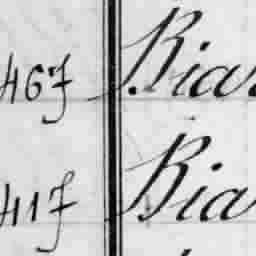 467 Bia
417 Bia